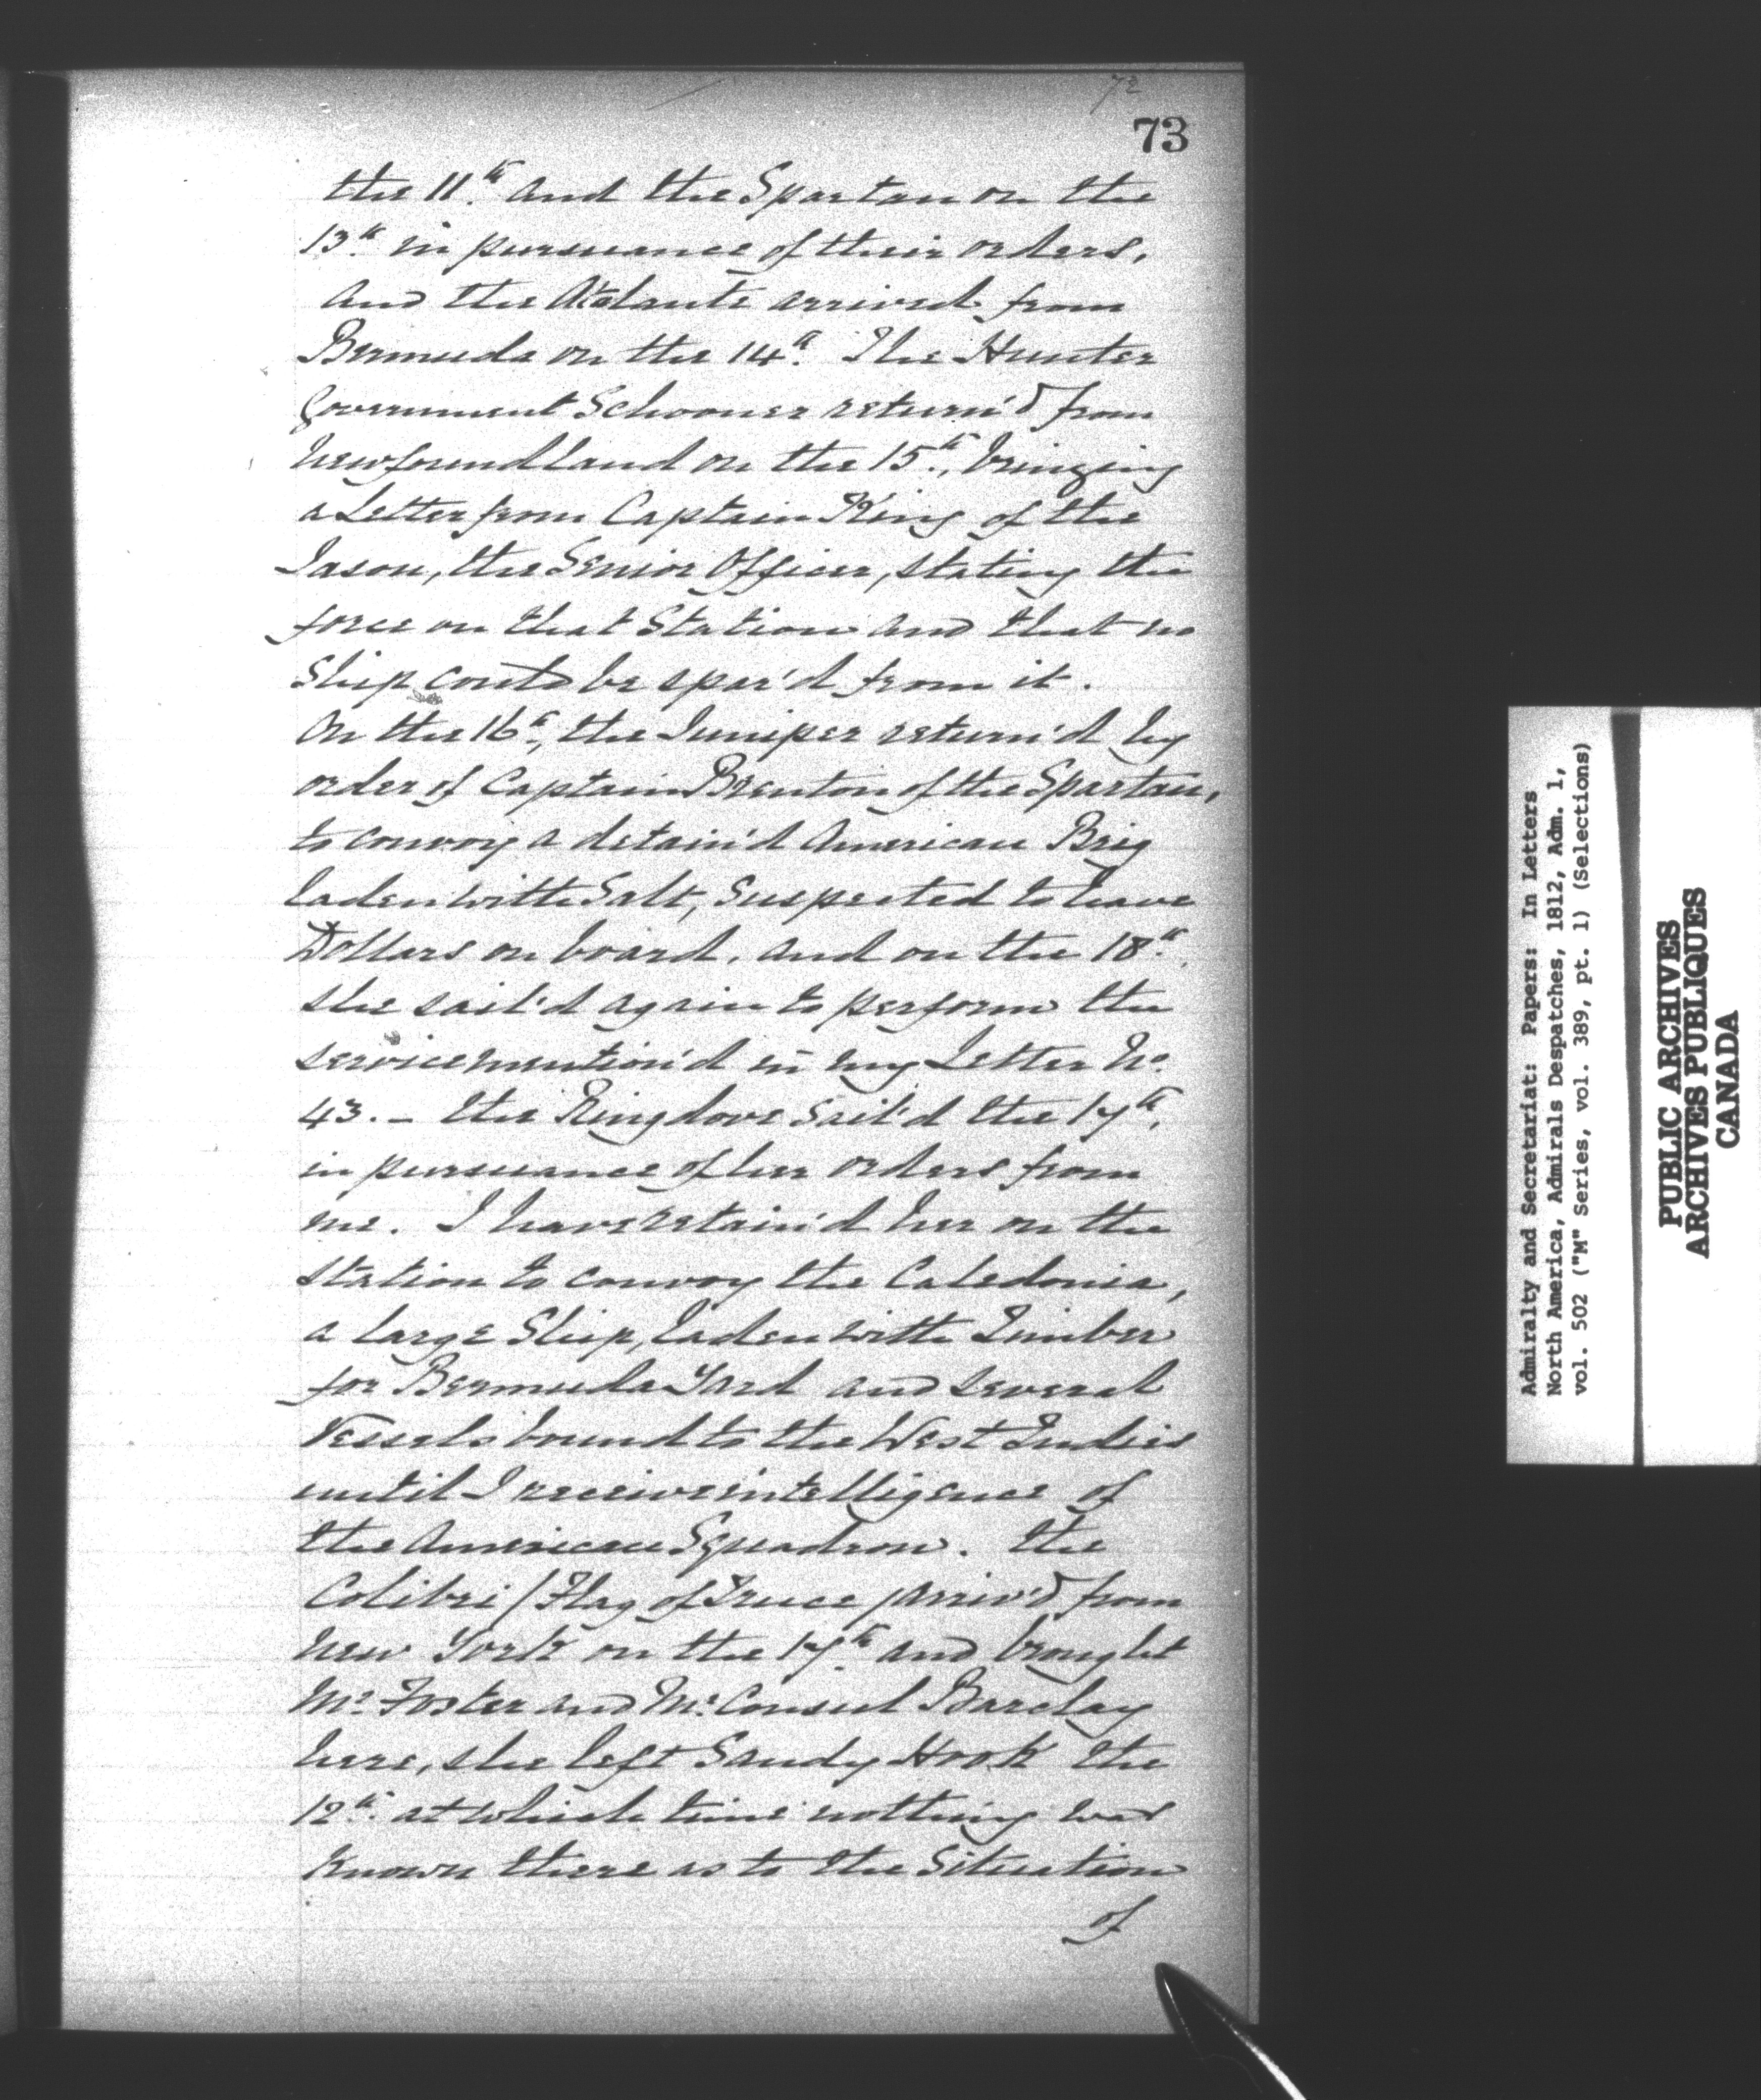 72
73
the 11th. and the Spartan on the
13th. in pursuance of their orders,
and the Atalante arrived from
Bermuda on the 14th. The Hunter
Government Schooner return'd from
Newfoundland on the 15th., bringing
a Letter from Captain King of the
Jason, the Senior Officer, stating the
force on that Station and that no
Ship could be spar'd from it.
On the 16th., the Juniper return'd by
order of Captain Brenton of the Spartan,
to convoy a detain'd American Brig
laden with Salt, suspected to have
Dollars on board. and on the 18th.
she sail'd again to perform the
service mention'd in my Letter No.
43. - the Ringdove sail'd the 17th.
in pursuance of her orders from
me. I have retain'd her on the
Station to convoy the Caledonia,
a large Ship, laden with Timber
for Bermuda Yard and several
Vessels bound to the West Indies
until I receive intelligence of
the American Squadron. the
Colibri / Flag of Truce / arriv'd from
New York on the 17th and brought
Mr. Foster and Mr. Consul Barclay
here, she left Sandy Hook the
12th. at which time nothing was
known there as to the Situation
of
Admiralty and Secretariat: Papers: In Letters
North America, Admirals Despatches, 1812, Adm. 1,
vol. 502 ("M" Series, vol. 389, pt. 1) (Selections)
PUBLIC ARCHIVES
ARCHIVES PUBLIQUES
CANADA